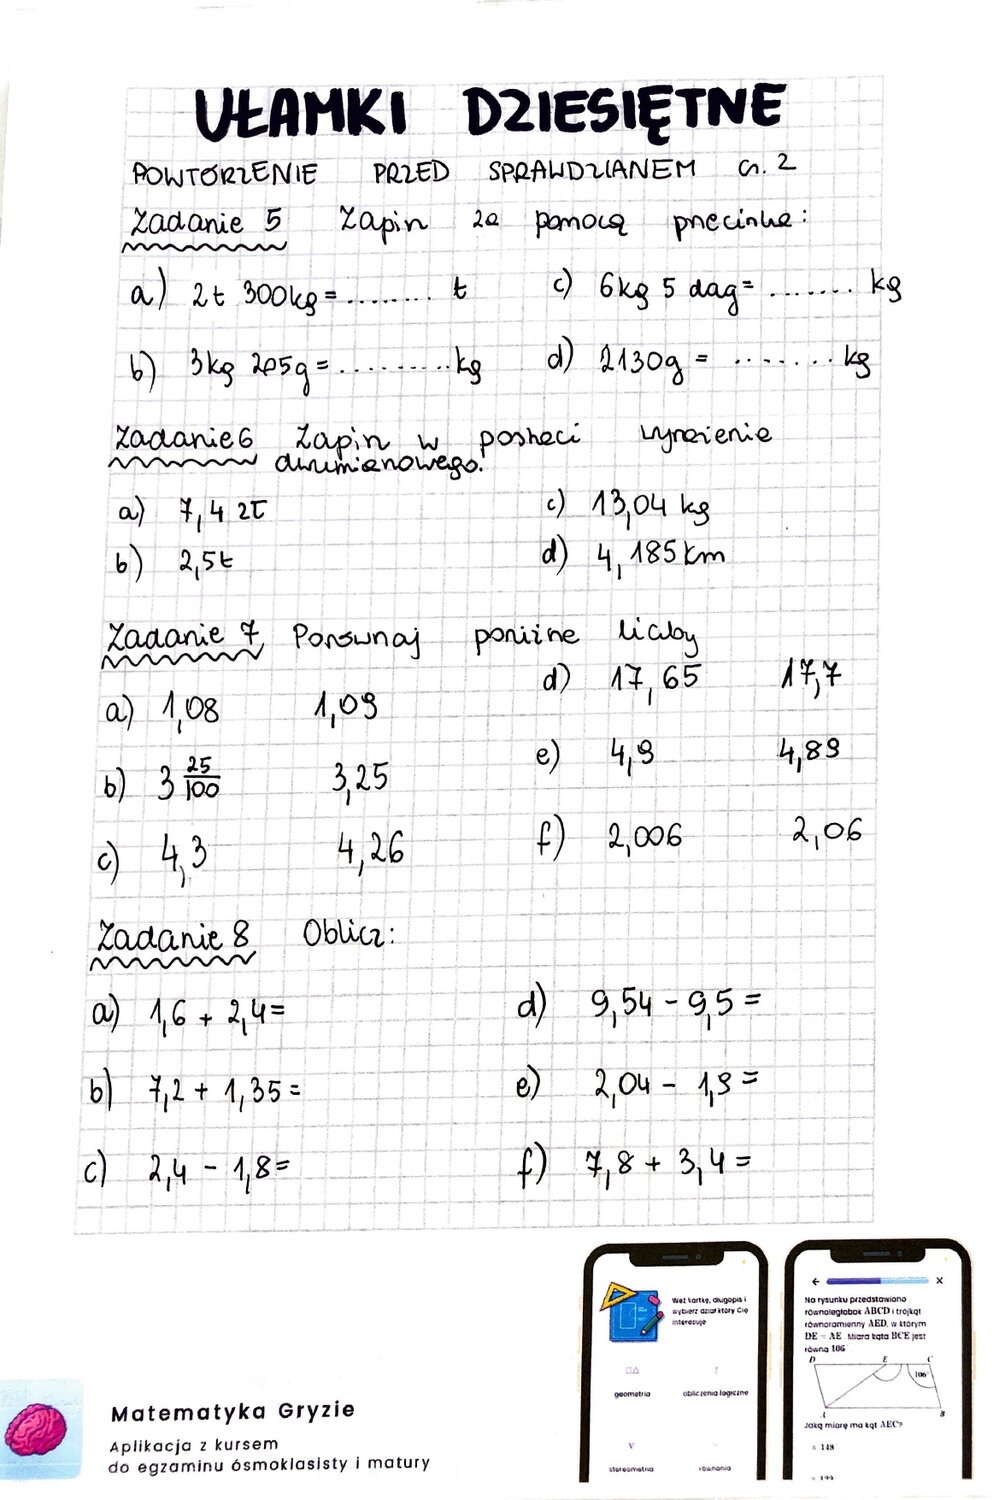 UŁAMKI DZIESIĘTNE
POWTÓRZENIE PRZED SPRAWDZIANEM cz. 2
Zadanie 5 Zapisz za pomocą przecinka:
a) 2t 300kg = ........ t c) 6kg 5 dag = ....... kg
b) 3kg 205g = ......... kg d) 2130g = ....... kg
Zadanie 6 Zapisz w postaci wyrażenia
dwumianowego.
a) 7,4 zł c) 13,04 kg
b) 2,5t d) 4,185km
Zadanie 7 Porównaj poniższe liczby
a) 1,08 1,09 d) 17,65 17,7
b) 3 25/100 3,25 e) 4,9 4,89
c) 4,3 4,26 f) 2,006 2,06
Zadanie 8 Oblicz:
a) 1,6 + 2,4 = d) 9,54 - 9,5 =
b) 7,2 + 1,35 = e) 2,04 - 1,9 =
c) 2,4 - 1,8 = f) 7,8 + 3,4 =
Matematyka Gryzie
Aplikacja z kursem
do egzaminu ósmoklasisty i matury
Weź kartkę, długopis i
wybierz dział który Cię
interesuje
geometria obliczenia logiczne
stereometria równania
Na rysunku przedstawiono
równoległobok ABCD i trójkąt
równoramienny AED, w którym
DE = AE Miara kąta BCE jest
równa 106°
D E C
106°
A B
Jaką miarę ma kąt AEC?
148